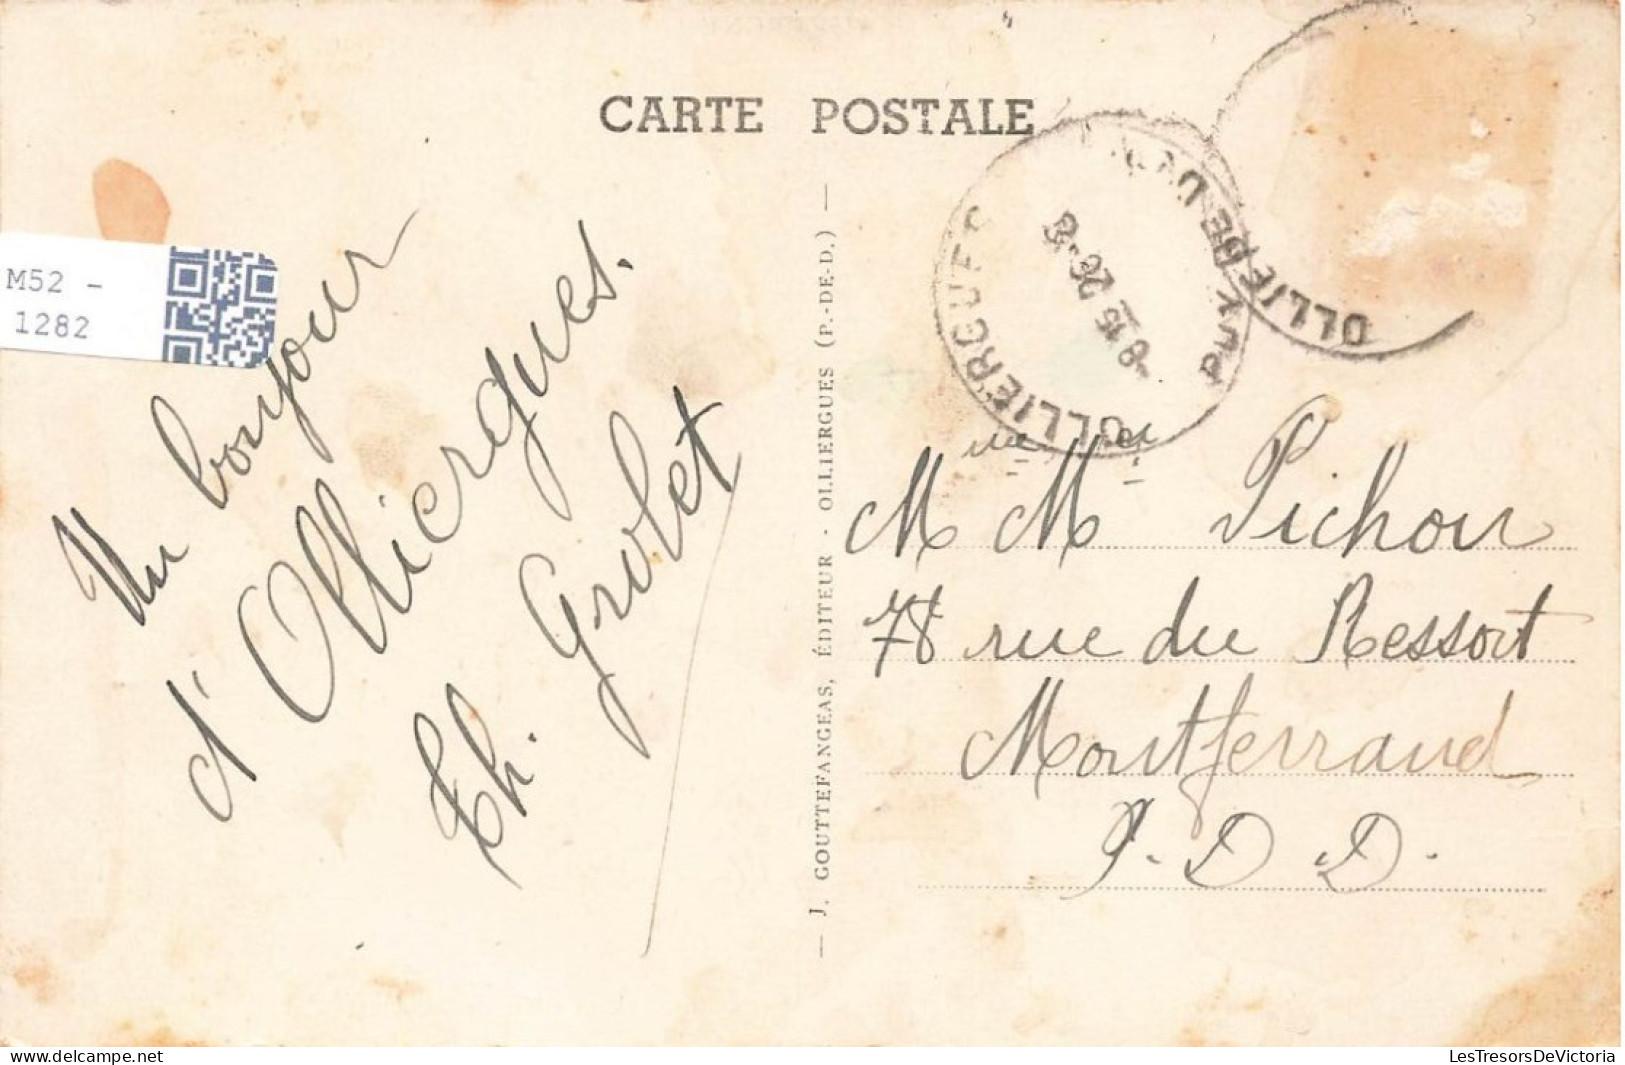 CARTE POSTALE
M52 -
1282
Un bonjour
d'Olliergues.
Th. Grolet
— J. GOUTTEFANGEAS, ÉDITEUR - OLLIERGUES (P.-DE-D.) —
OLLIERGUES
PUY DE
OLLIE
M M Pichon
78 rue du Ressort
Montferrand
P. D D.
www.delcampe.net
LesTresorsDeVictoria